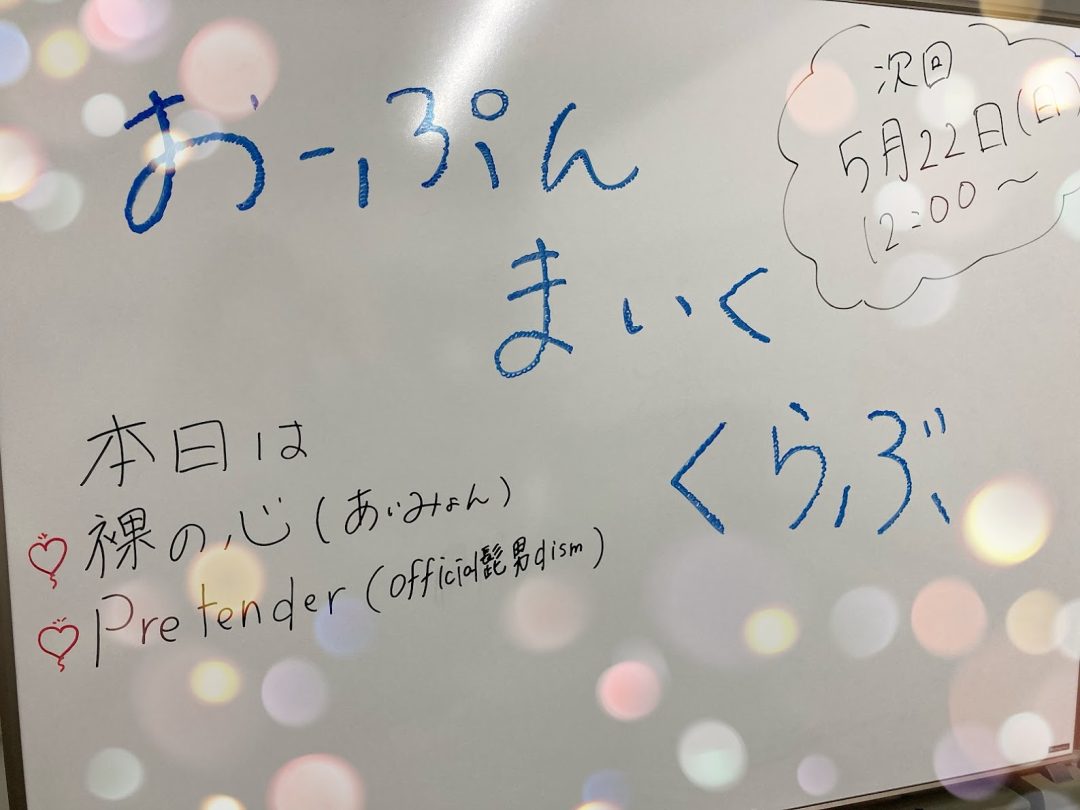 おーぷん
まいく
くらぶ
次回
5月22日(日)
12:00~
本日は
裸の心(あいみょん)
Pretender(Official髭男dism)